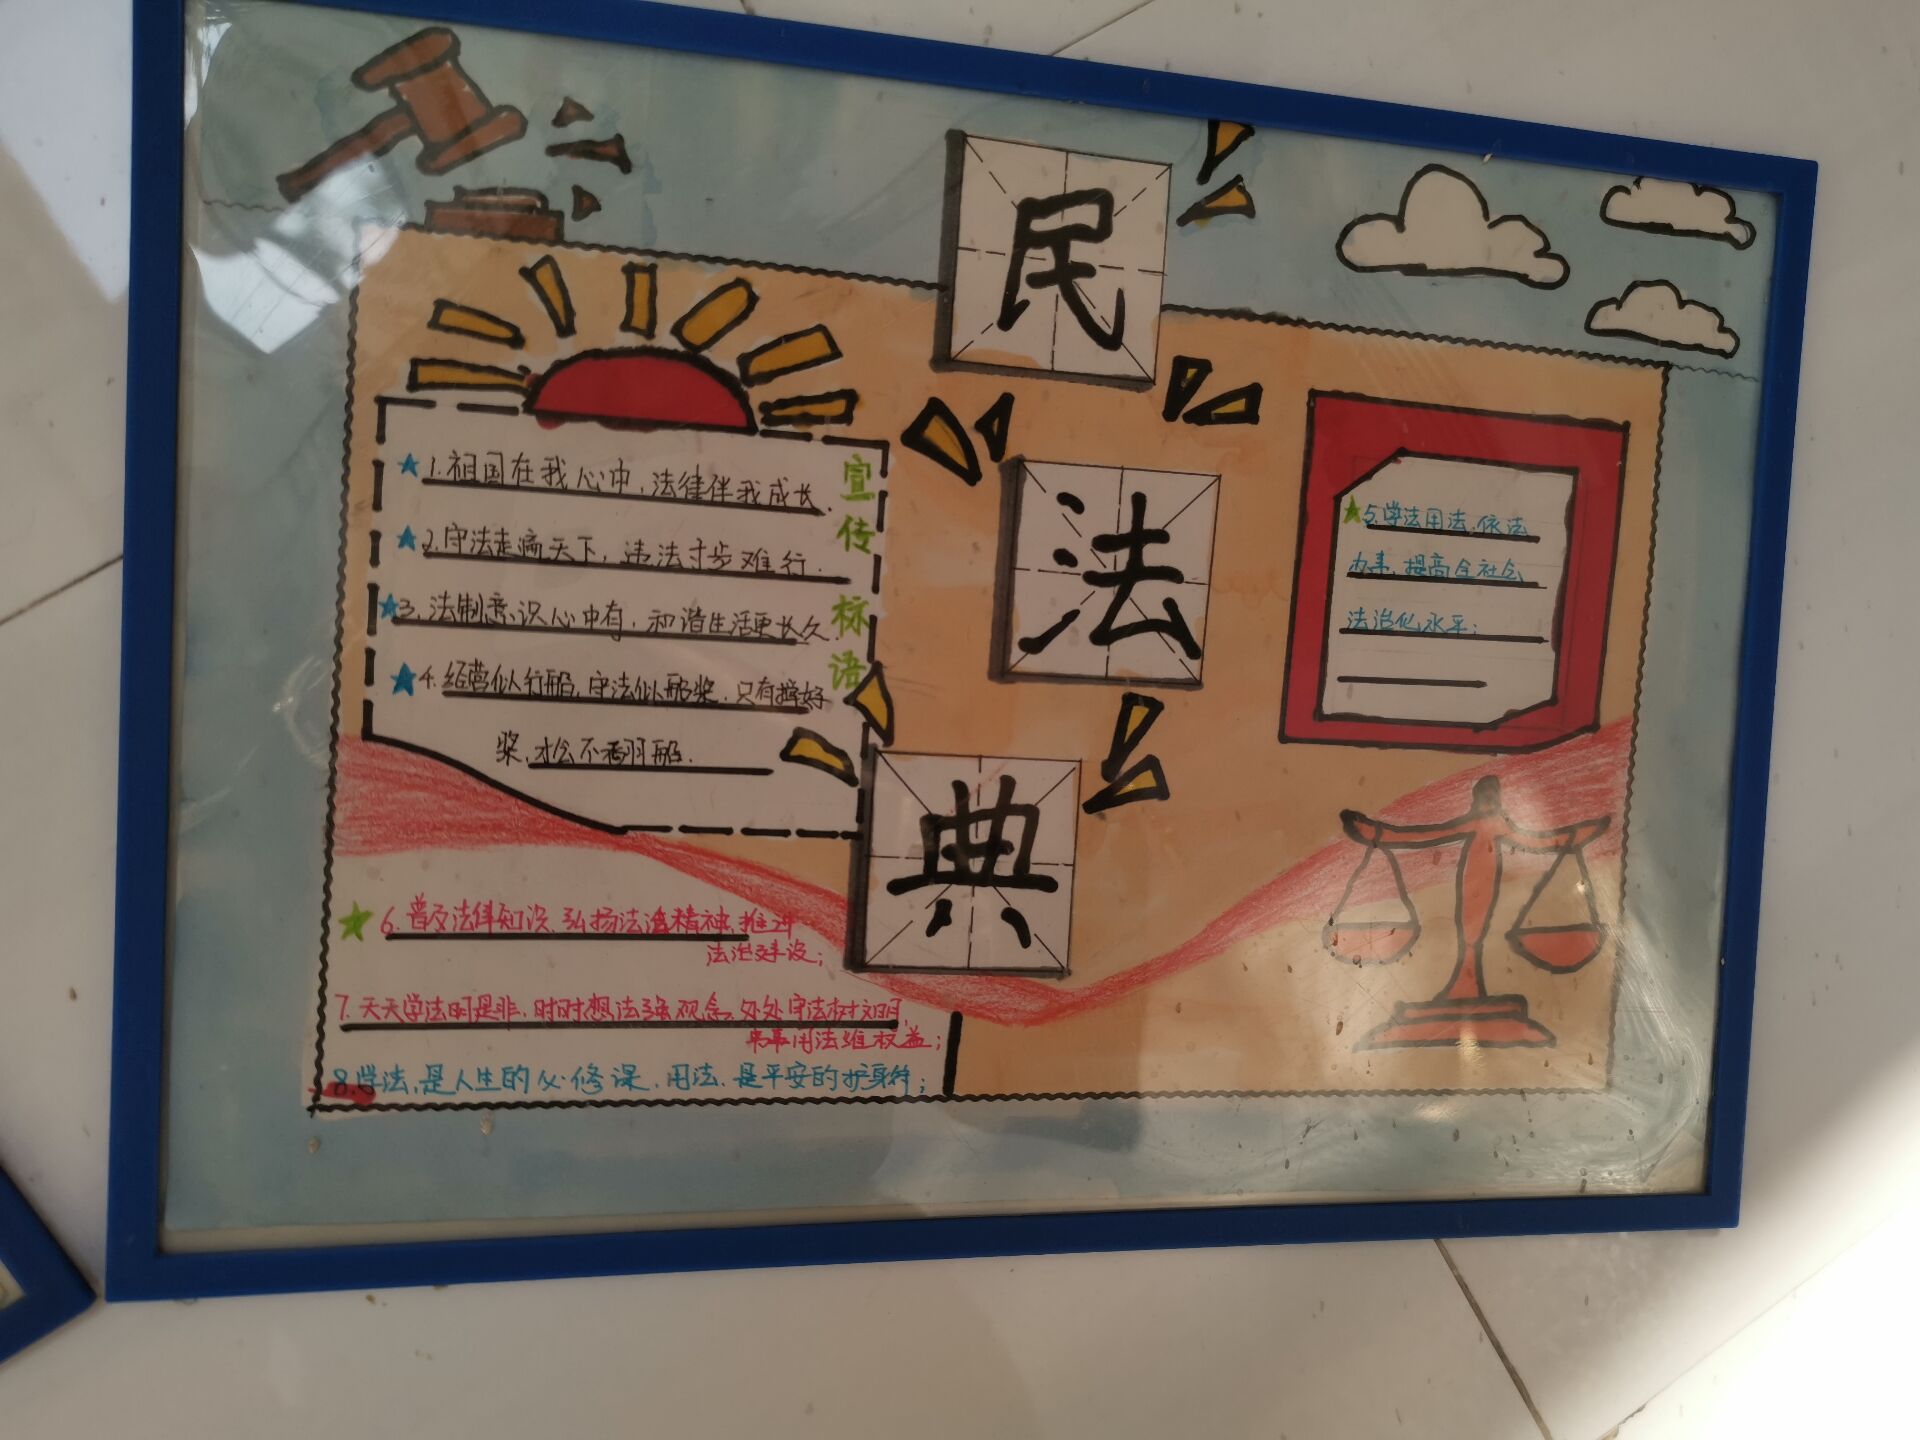 民
法
典
宣传标语
1.祖国在我心中,法律伴我成长.
2.守法走遍天下,违法寸步难行.
3.法制意识心中有,和谐生活更长久.
4.经营似行船,守法似船桨.只有撑好
桨,才会不翻船.
5.学法用法,依法
办事,提高全社会
法治化水平;
6.普及法律知识,弘扬法治精神,推进
法治建设;
7.天天学法明是非,时时想法强观念,处处守法树文明,
事事用法维权益;
8.学法,是人生的必修课,用法,是平安的护身符;